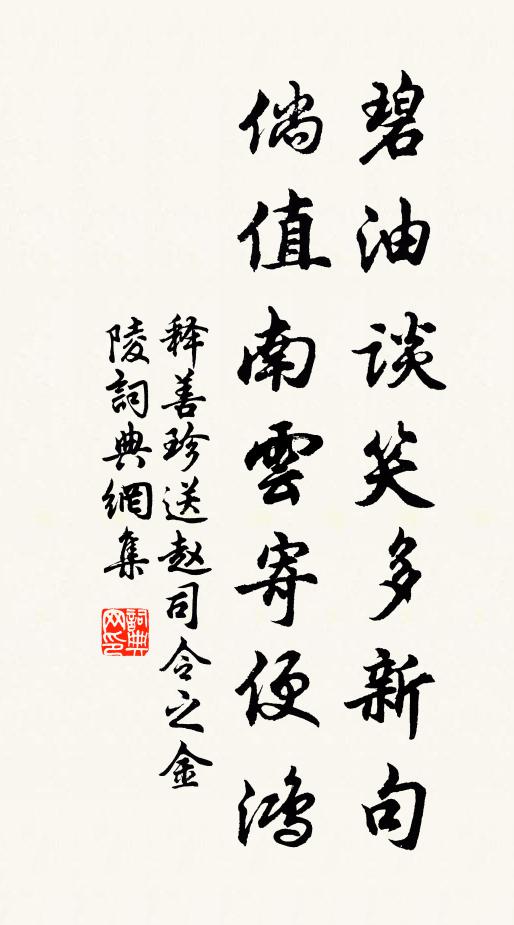 碧油談笑多新句
倘值南雲寄便鴻
释善珍送赵司令之金
陵詞典網集
詞典
网印